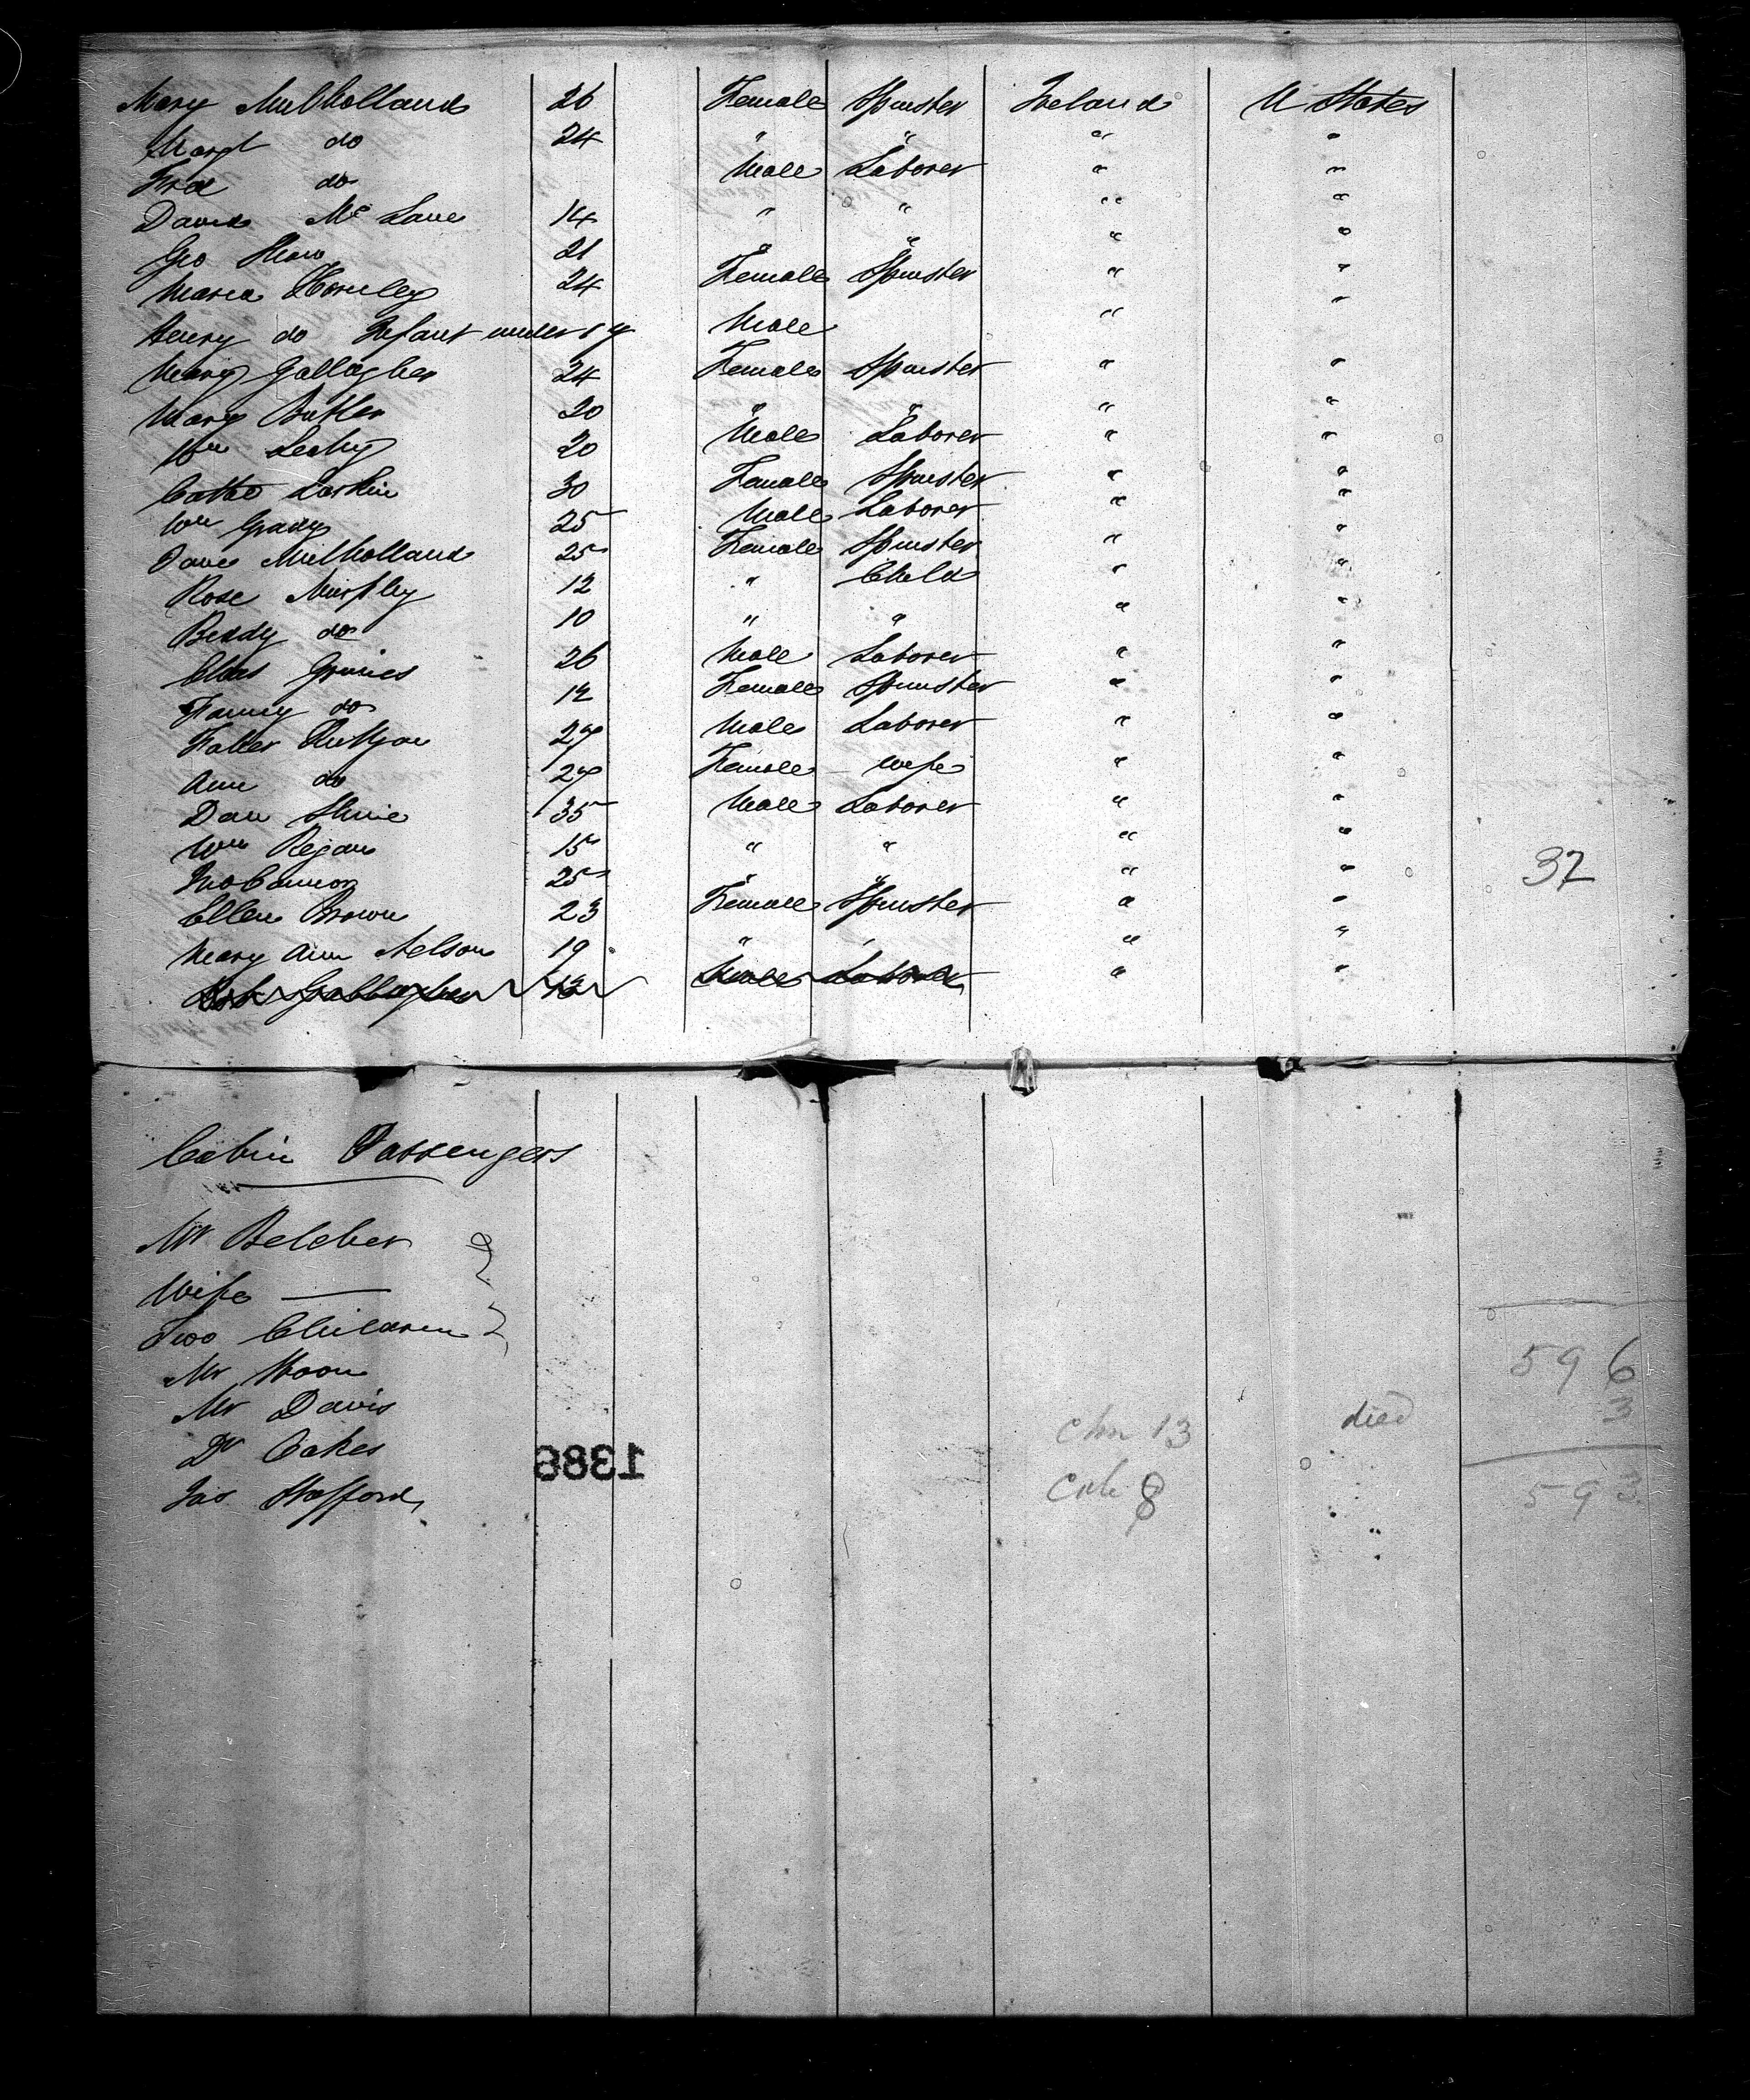 Mary Mulholland 26 Female Spinster Ireland U States
Margt do 24 " " " "
Fred do Male Laborer " "
David Mc Lane 14 " " " "
Geo Shaw 21 " " " "
Maria Hornley 24 Female Spinster " "
Henry do Infant under 1 y Male " "
Mary Gallagher 24 Female Spinster " "
Mary Butler 20 " " " "
Wm Leahy 20 Male Laborer " "
Cathe Larkin 30 Female Spinster " "
Wm Grady 25 Male Laborer " "
Jane Mulholland 25 Female Spinster " "
Rose Murphy 12 " Child " "
Biddy do 10 " " " "
Chas Grimes 26 Male Laborer " "
Fanny do 12 Female Spinster " "
27 Male Laborer " "
Ann do 27 Female wife " "
Dan Shine 35 Male Laborer " "
Wm Regan 15 " " " "
Jno Cannon 25 " " " " 32
Ellen Brown 23 Female Spinster " "
Mary Ann Nelson 19 " " " "
Gallagher Male Laborer " "
Cabin Passengers
Mr Belcher
Wife —
Two Children
Mr Moon
Mr Davis
Dr Oakes
Jas Stafford
1386
chn 13
died
596
3
593
8